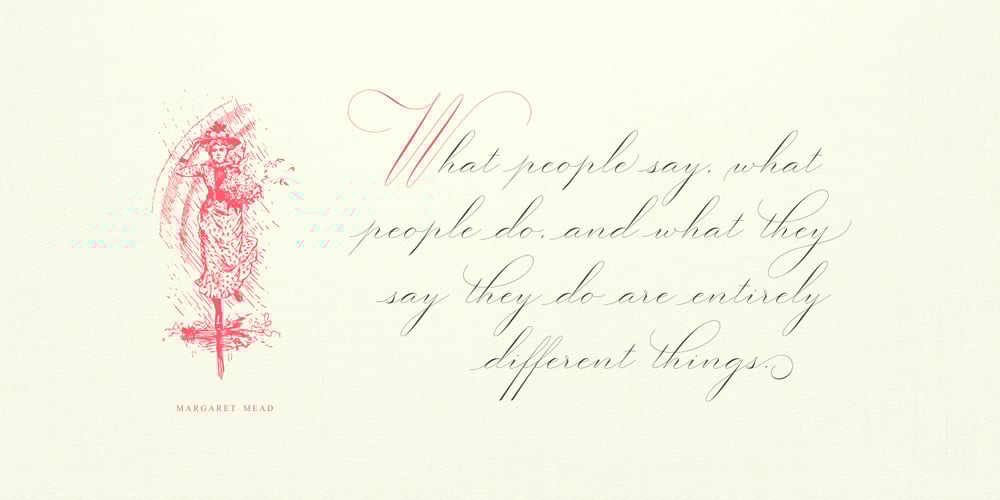 What people say, what
people do, and what they
say they do are entirely
different things.
MARGARET MEAD